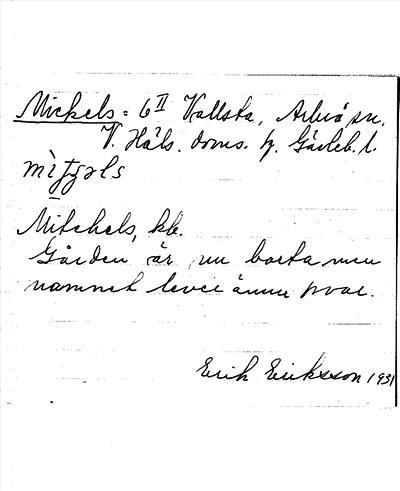 Mickels = 6II Vallsta, Arbrå sn.
V. Häls. doms. hg. Gävleb. l.
Mitchels, kb.
Gården är nu borta men
namnet lever ännu kvar.
Erik Eriksson 1931